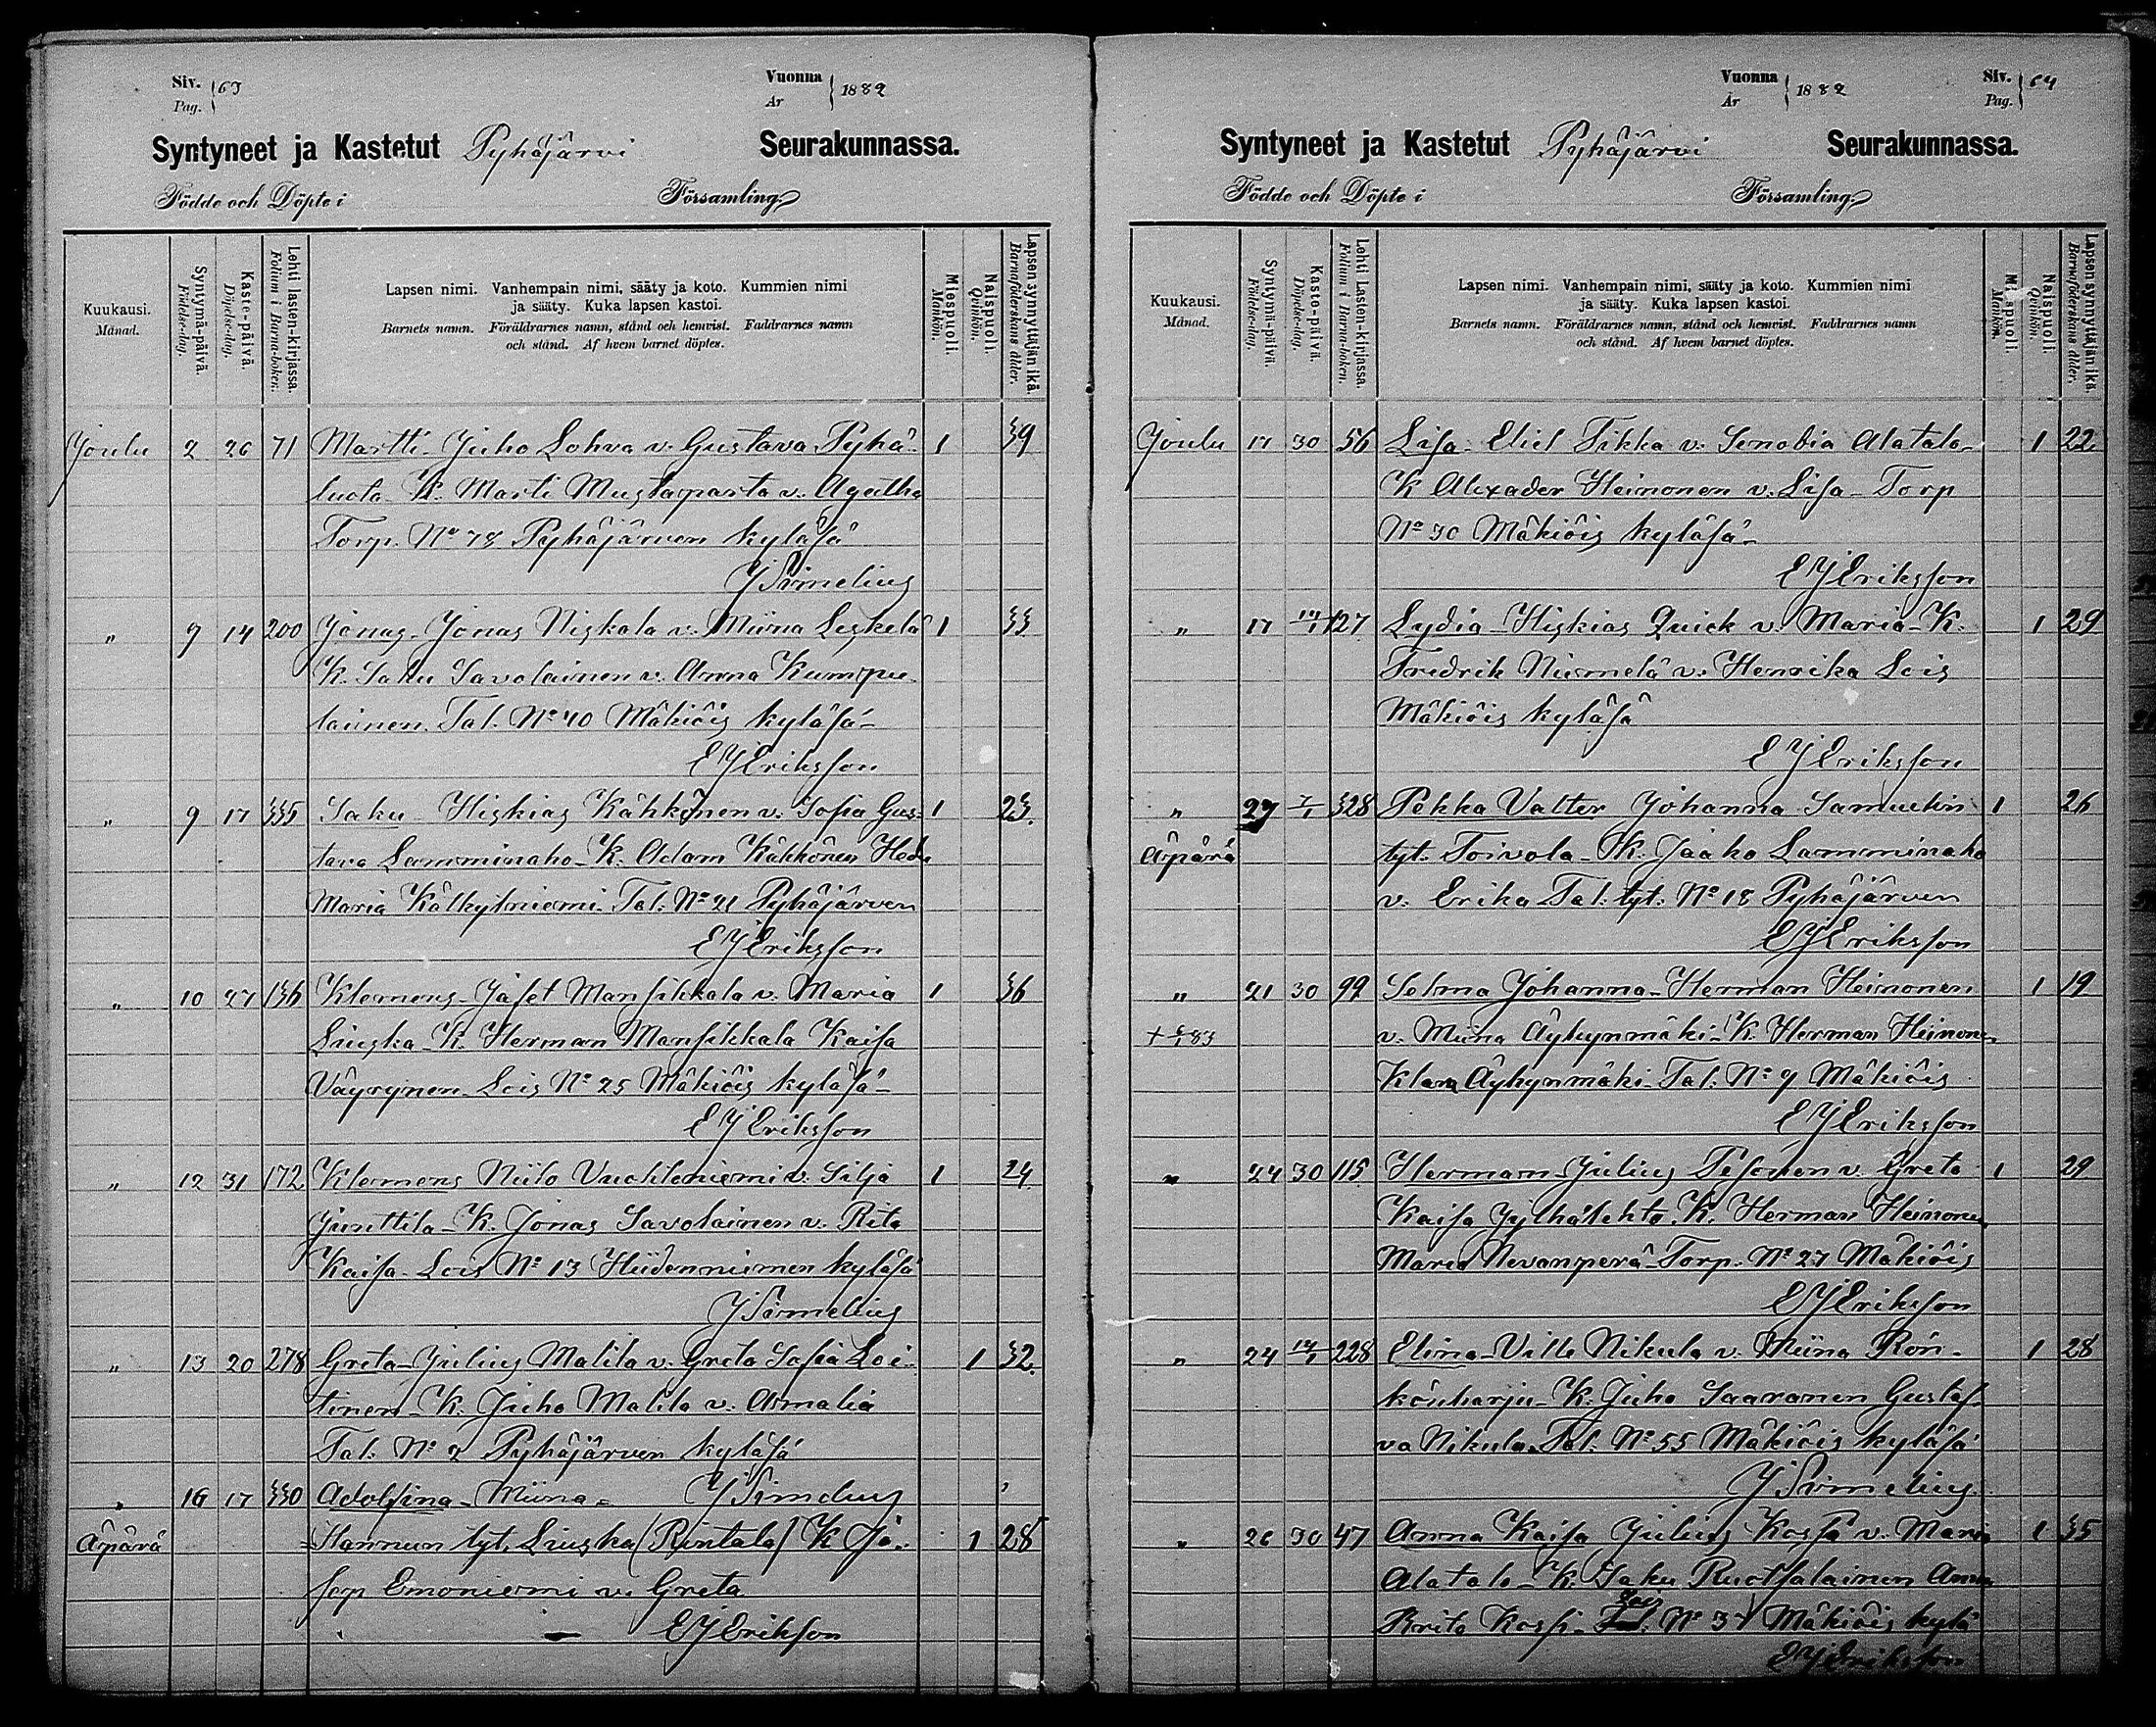 Siv. 63
Pag.
Vuonna 1882
År
Syntyneet ja Kastetut Pyhäjärvi Seurakunnassa.
Födde och Döpte i Församling.
Kuukausi. Månad.
Syntymä-päivä. Födelse-dag.
Kaste-päivä. Döpelse-dag.
Lehti lasten-kirjassa. Folium i Barna-boken.
Lapsen nimi. Vanhempain nimi, sääty ja koto. Kummien nimi
ja sääty. Kuka lapsen kastoi.
Barnets namn. Föräldrarnes namn, stånd och hemvist. Faddrarnes namn
och stånd. Af hvem barnet döptes.
Miespuoli. Mankön.
Naispuoli. Qvinkön.
Lapsensynnyttäjän ikä. Barnaföderskans ålder.
Joulu 2 26 71 Martti. Juho Lohva v. Gustava Pyhä- 1 39
luota K. Marti Mustaparta v. Agatha
Torp. No 78 Pyhäjärven kyläsä
" 9 14 200 Jonas. Jonas Niskala v. Miina Leskelä 1 33
K. Saku Savolainen v. Anna Kumpu
lainen. Tal. No 40 Mäkiöis kyläsä
E J Eriksson
" 9 17 335 Saku Hiskias Kähkönen v. Sofia Gus- 1 23.
tava Lamminaho K. Adam Kähkönen Heda
Maria Kälkyläniemi. Tal. No 21 Pyhäjärven
E J Eriksson
" 10 27 136 Klemens Jafet Mansikkala v. Maria 1 36
Liuska K. Herman Mansikkala Kaisa
Väyrynen Lois No 25 Mäkiöis kyläsä
E J Eriksson
" 12 31 172 Klemens Niilo Vuohtoniemi v. Silja 1 24
Junttila K. Jonas Savolainen v. Rita
Kaisa Lois No 13 Hiidenniemen kyläsä
" 13 20 278 Greta Julius Malila v. Greta Sofia Loi- 1 32.
tinen K. Juho Malila v. Amalia
Tal. No 2 Pyhäjärven kyläsä
" 16 17 330 Adolfina Miina
Äpärä Hannun tyt. Liuska (Rintala) K Jo- 1 28
sep Emoniemi v. Greta
E J Erikson
Vuonna 1882
År
Siv. 64
Pag.
Syntyneet ja Kastetut Pyhäjärvi Seurakunnassa.
Födde och Döpte i Församling.
Kuukausi. Månad.
Syntymä-päivä. Födelse-dag.
Kaste-päivä. Döpelse-dag.
Lehti Lasten-kirjassa. Folium i Barna-boken.
Lapsen nimi. Vanhempain nimi, sääty ja koto. Kummien nimi
ja sääty. Kuka lapsen kastoi.
Barnets namn. Föräldrarnes namn, stånd och hemvist. Faddrarnes namn
och stånd. Af hvem barnet döptes.
M. spuoli. Mankön.
Naispuoli. Qvinkön.
Lapsensynnyttäjän ikä. Barnaföderskans ålder.
Joulu 17 30 56 Lisa Eliel Tikka v. Senobia Alatalo 1 22
K Alexader Heinonen v. Lisa Torp
No 30 Mäkiöis kyläsä
E J Eriksson
" 17 14/1 127 Lydia Hiskias Quick v. Maria K. 1 29
Fredrik Niemelä v. Henrika Lois
Mäkiöis kyläsä
E J Eriksson
" 27 7/1 328 Pekka Valter Johanna Samuelin 1 26
Äpärä tyt. Toivola K. Jaako Lamminaho
v. Erika Tal. tyt. No 18 Pyhäjärven
E J Eriksson
" 21 30 99 Selma Johanna Herman Heinonen 1 19
v. Miina Äyhynmäki K. Herman Heinonen
Klara Äyhynmäki Tal. No 9 Mäkiöis
E J Eriksson
" 24 30 115 Herman Julius Pesonen v. Greta 1 29
Kaisa Jylhälehto K. Herman Heinonen
Maria Nevanperä Torp. No 27 Mäkiöis
E J Eriksson
" 24 14/1 228 Elina Ville Nikula v. Miina Rön- 1 28
könharju K. Juho Saaranen Gustaf-
va Nikula Tal. No 55 Mäkiöis kyläsä
" 26 30 47 Anna Kaisa Julius Kossi v. Maria 1 35
Alatalo K. Saku Ruotsalainen Anna
Brita Kossi No 37 Mäkiöis kylä
E J Eriksson